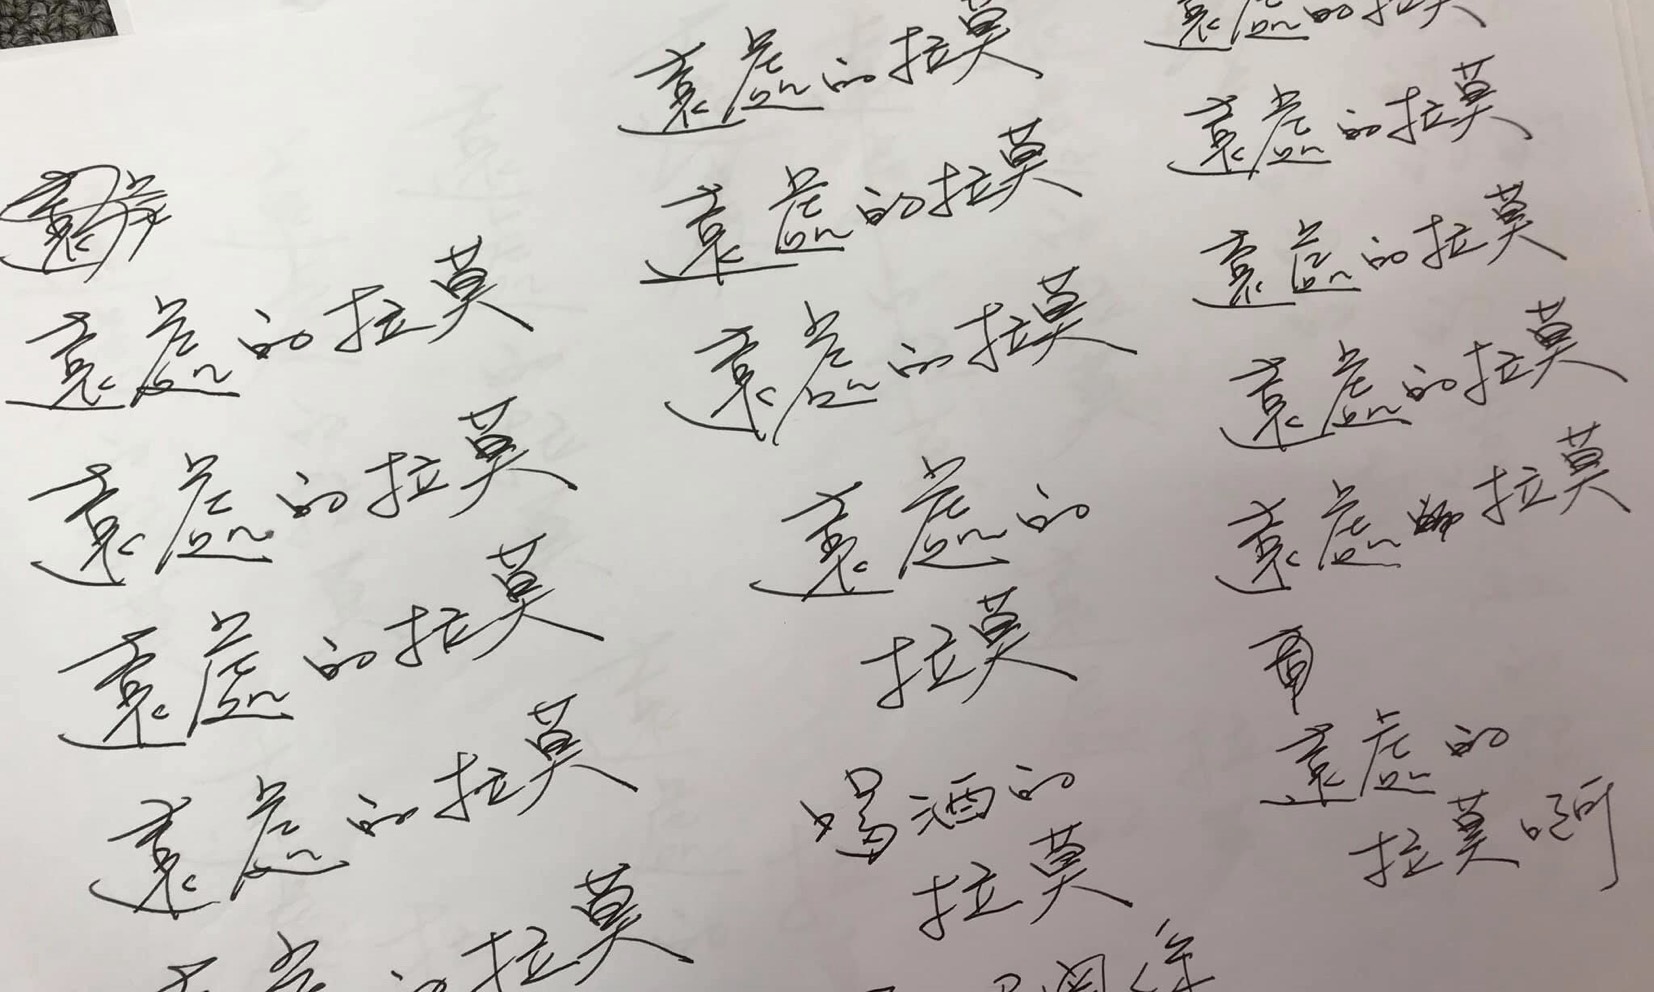 遠處的拉莫
遠處的拉莫
遠處的拉莫
遠處的拉莫
的拉莫
遠處的拉莫
遠處的拉莫
遠處的拉莫
遠處的
拉莫
喝酒的
拉莫
遠處的拉莫
遠處的拉莫
遠處的拉莫
遠處的拉莫
遠處的拉莫
遠處的
拉莫啊